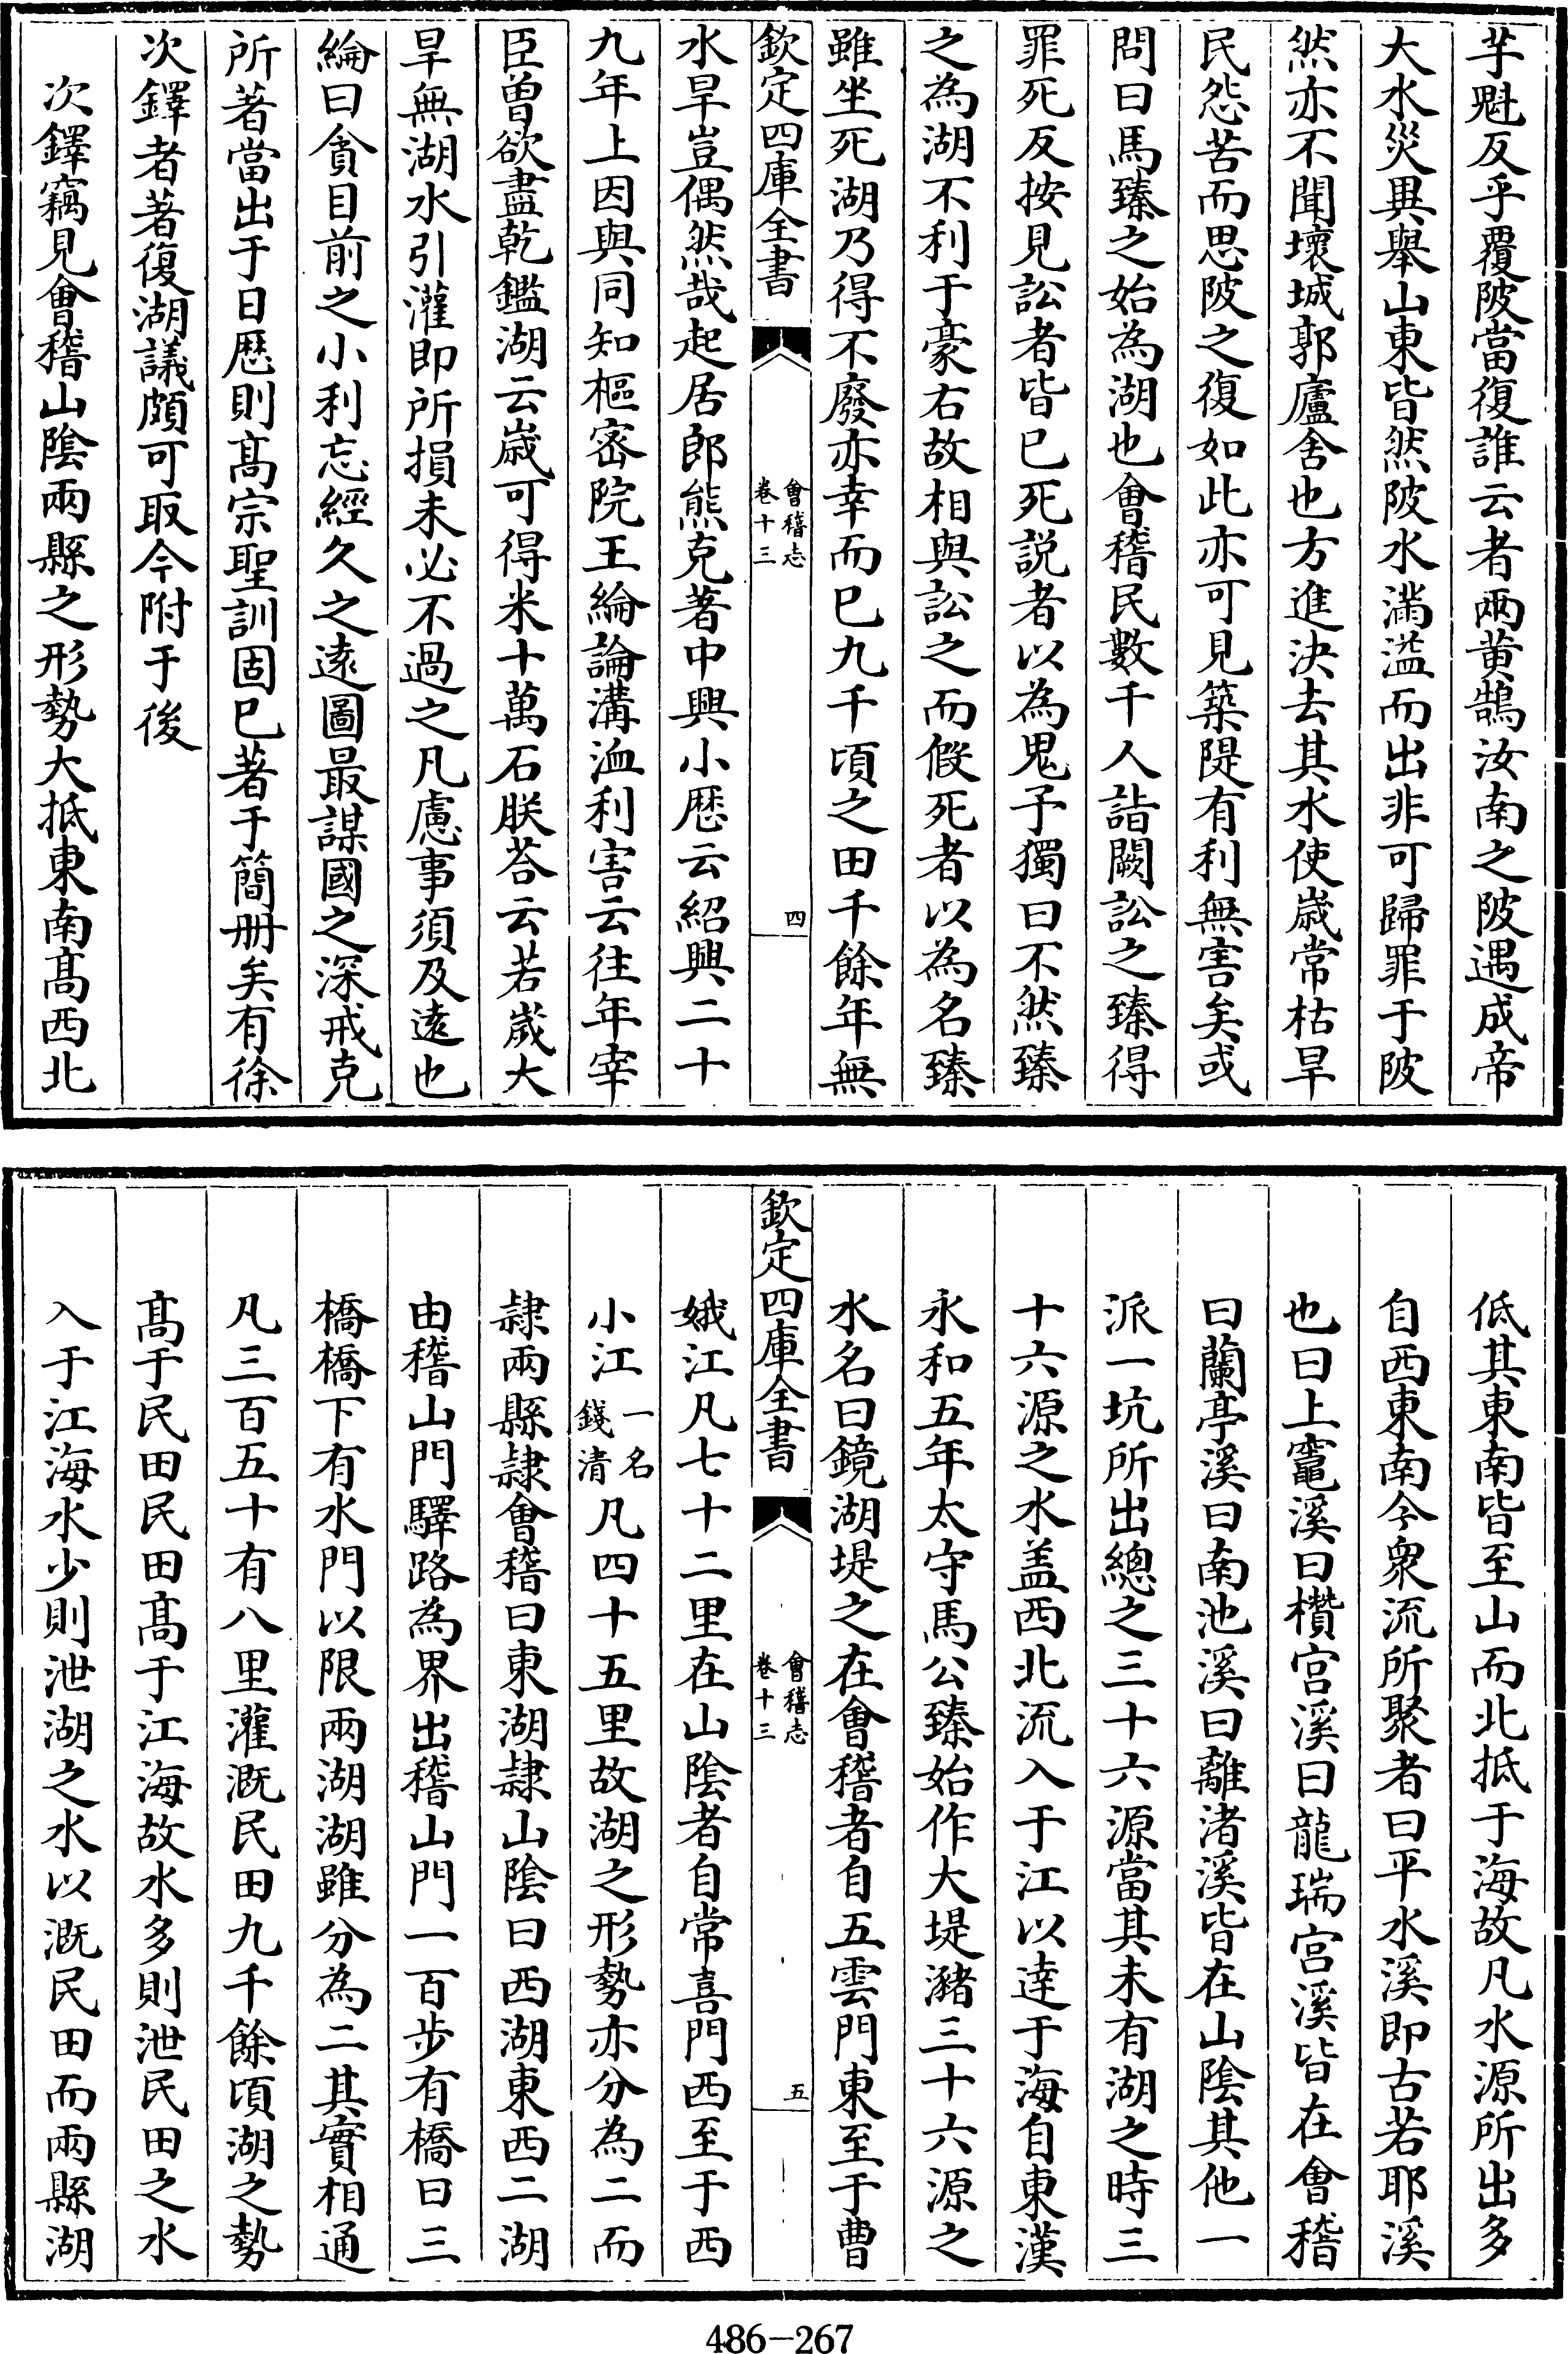 芋魁反乎覆陂當復誰云者兩黄鵠汝南之陂遇成帝
大水災異舉山東皆然陂水滿溢而出非可歸罪于陂
然亦不聞壞城郭廬舍也方進決去其水使嵗常枯旱
民怨苦而思陂之復如此亦可見築隄有利無害矣或
問曰馬臻之始為湖也會稽民數千人詣闕訟之臻得
罪死反按見訟者皆已死説者以為鬼予獨曰不然臻
之為湖不利于豪右故相與訟之而假死者以為名臻
雖坐死湖乃得不廢亦幸而已九千頃之田千餘年無
欽定四庫全書
會稽志
卷十三
四
水旱豈偶然哉起居郎熊克著中興小厯云紹興二十
九年上因與同知樞宻院王綸論溝洫利害云往年宰
臣曽欲盡乾鑑湖云嵗可得米十萬石朕荅云若嵗大
旱無湖水引灌即所損未必不過之凡慮事須及逺也
綸曰貪目前之小利忘經久之逺圖最謀國之深戒克
所著當出于日厯則髙宗聖訓固已著于簡册矣有徐
次鐸者著復湖議頗可取今附于後
次鐸竊見會稽山陰兩縣之形勢大抵東南髙西北
低其東南皆至山而北抵于海故凡水源所出多
自西東南今衆流所聚者曰平水溪即古若耶溪
也曰上竈溪曰欑宫溪曰龍瑞宫溪皆在會稽
曰蘭亭溪曰南池溪曰離渚溪皆在山陰其他一
派一坑所出總之三十六源當其未有湖之時三
十六源之水盖西北流入于江以逹于海自東漢
永和五年太守馬公臻始作大堤瀦三十六源之
水名曰鏡湖堤之在會稽者自五雲門東至于曹
欽定四庫全書
會稽志
卷十三
五
娥江凡七十二里在山陰者自常喜門西至于西
小江一名錢清凡四十五里故湖之形勢亦分為二而
隷兩縣隷會稽曰東湖隷山陰曰西湖東西二湖
由稽山門驛路為界出稽山門一百步有橋曰三
橋橋下有水門以限兩湖湖雖分為二其實相通
凡三百五十有八里灌溉民田九千餘頃湖之勢
髙于民田民田髙于江海故水多則泄民田之水
入于江海水少則泄湖之水以溉民田而兩縣湖
486-267